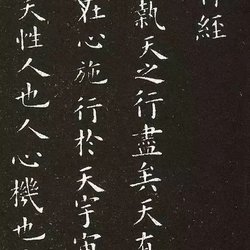 符經
執天之行盡矣天有
在心施行於天宇宙
天性人也人心機也